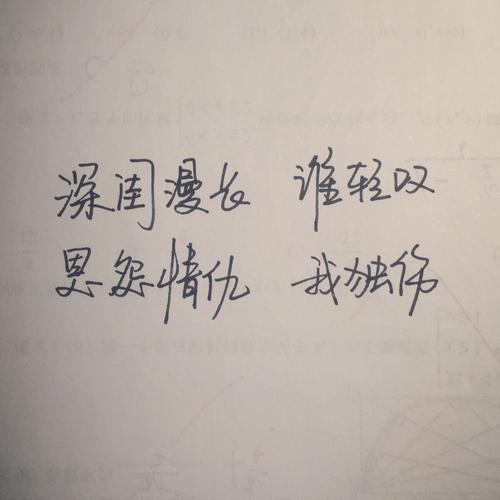 深闺漫长 谁轻叹
恩怨情仇 我独伤